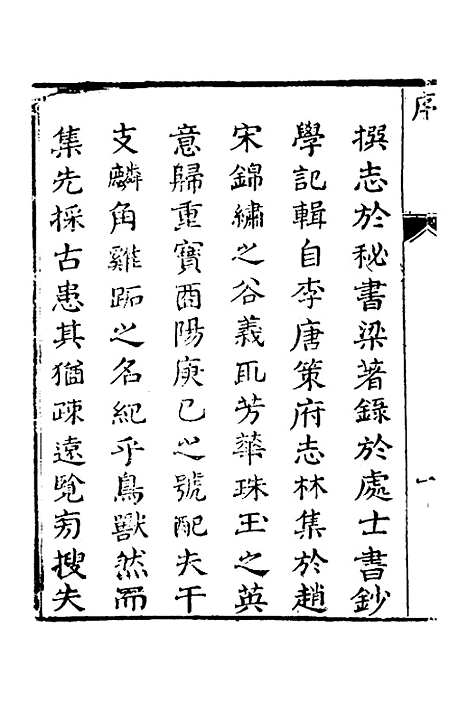 序
一
撰志於秘書梁著錄於處士書鈔
學記輯自李唐策府志林集於趙
宋錦繡之谷義瓦芳華珠玉之英
意歸重寶酉陽庚巳之號配夫干
支麟角雞跖之名紀乎鳥獸然而
集先採古患其猶疎遠覽旁搜夫